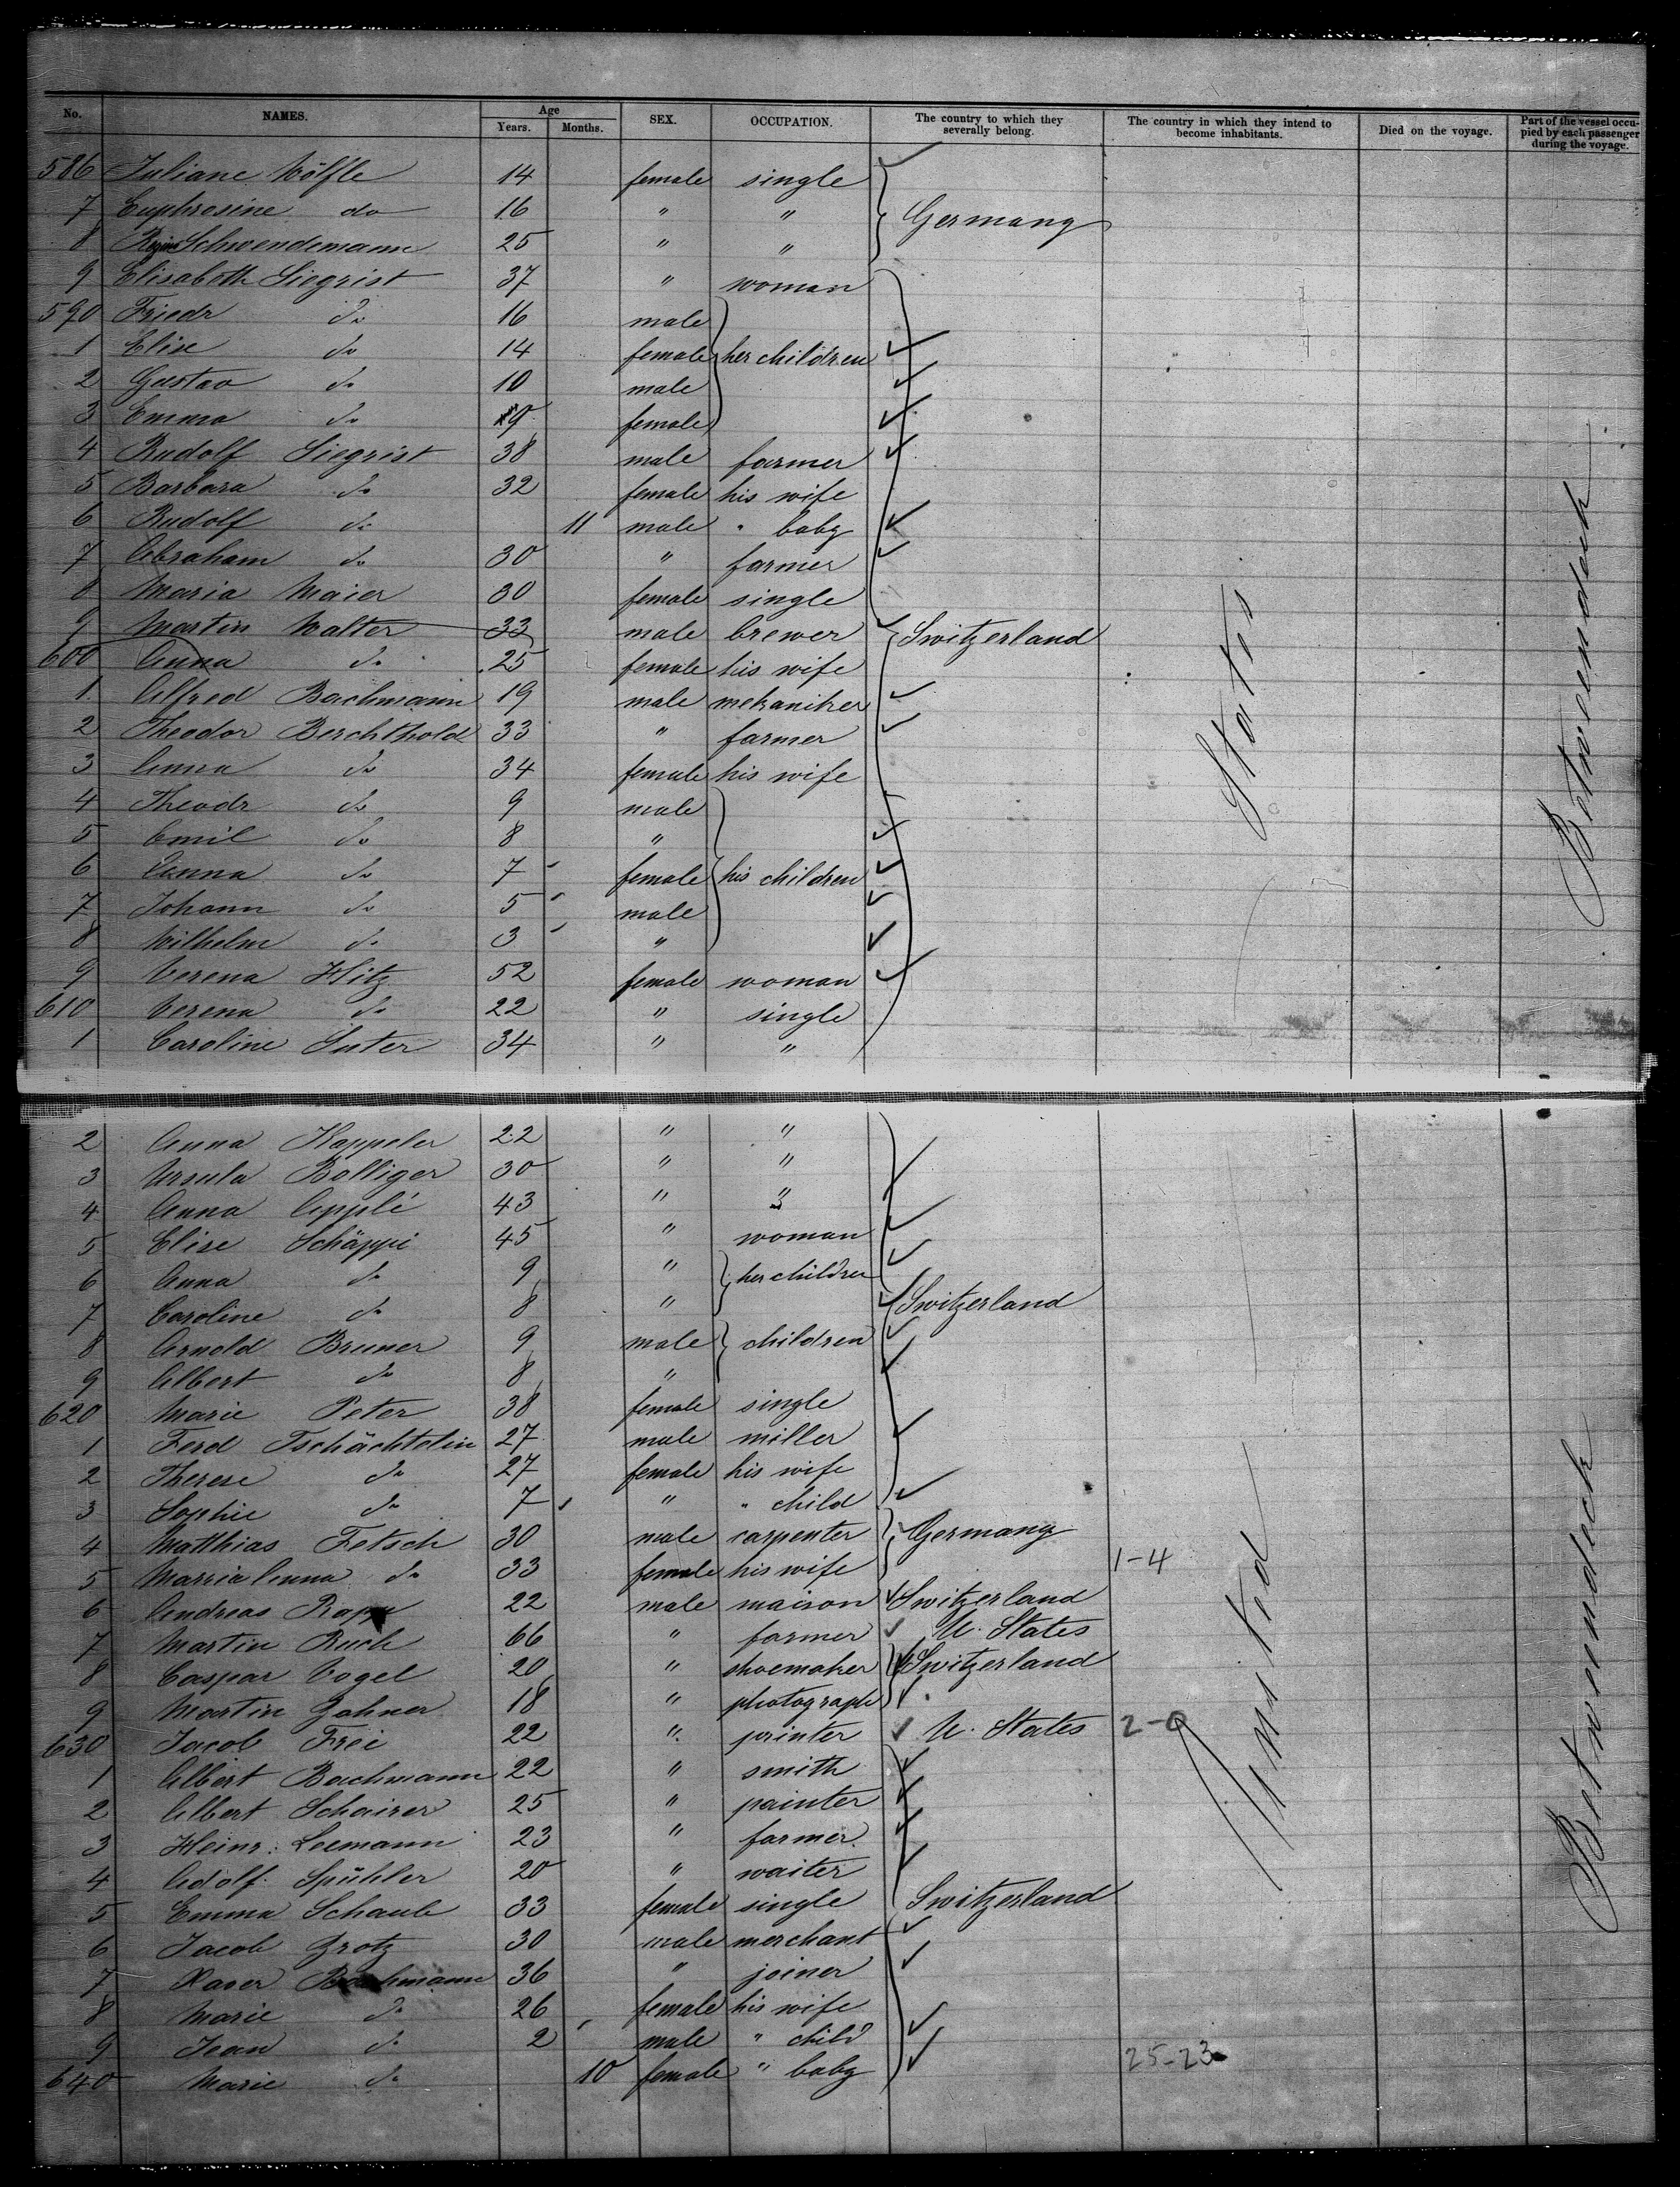 No. NAMES. Age Years. Months. SEX. OCCUPATION. The country to which they severally belong. The country in which they intend to become inhabitants. Died on the voyage. Part of the vessel occupied by each passenger during the voyage.
586 Juliane Wölfle 14 female single
7 Euphrosine do 16 " " Germany
8 Regina Schwendemann 25 " "
9 Elisabeth Siegrist 37 " woman
590 Friedr do 16 male
1 Elise do 14 female her children
2 Gustav do 10 male
3 Emma do 9 female
4 Rudolf Siegrist 38 male farmer
5 Barbara do 32 female his wife
6 Rudolf do 11 male " baby
7 Abraham do 30 " farmer
8 Maria Maier 30 female single
9 Martin Walter 33 male brewer Switzerland
600 Anna do 25 female his wife
1 Alfred Bachmann 19 male mekaniker
2 Theodor Berchthold 33 " farmer
3 Anna do 34 female his wife
4 Theodr do 9 male
5 Emil do 8 "
6 Anna do 7 female his children
7 Johann do 5 male
8 Wilhelm do 3 "
9 Verena Hitz 52 female woman
610 Verena do 22 " single
1 Caroline Suter 34 " "
States
Betweendeck
2 Anna Kappeler 22 " "
3 Ursula Bolliger 30 " "
4 Anna Applé 43 " "
5 Elise Schäppi 45 " woman
6 Anna do 9 " her children
7 Caroline do 8 " Switzerland
8 Arnold Bruner 9 male children
9 Albert do 8 "
620 Marie Peter 38 female single
1 Ferd Tschächtelin 27 male miller
2 Therese do 27 female his wife
3 Sophie do 7 " " child
4 Matthias Fetsch 30 male carpenter Germany
5 Maria Anna do 33 female his wife 1-4
6 Andreas Rapp 22 male maison Switzerland
7 Martin Ruch 66 " farmer U. States
8 Caspar Vogel 20 " shoemaker Switzerland
9 Martin Zahner 18 " photograph
630 Jacob Frei 22 " painter U. States 2-0
1 Albert Bachmann 22 " smith
2 Albert Schairer 25 " painter
3 Heinr: Leemann 23 " farmer
4 Adolf Spühler 20 " waiter
5 Emma Schaub 33 female single Switzerland
6 Jacob Grotz 30 male merchant
7 Xaver Bachmann 36 " joiner
8 Marie do 26 female his wife
9 Jean do 2 male " child
640 Marie do 10 female " baby 25-23
United
Betweendeck